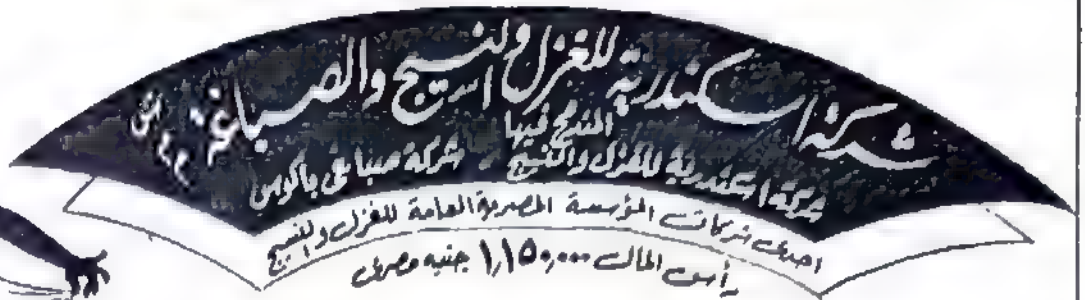 شركة اسكندرية للغزل والنسيج والصباغة
المندمج فيها
شركة اسكندرية للغزل والنسيج شركة صباغى باكوس
احدى شركات المؤسسة المصرية العامة للغزل والنسيج
رأس المال ١,١٥٠,٠٠٠ جنيه مصرى